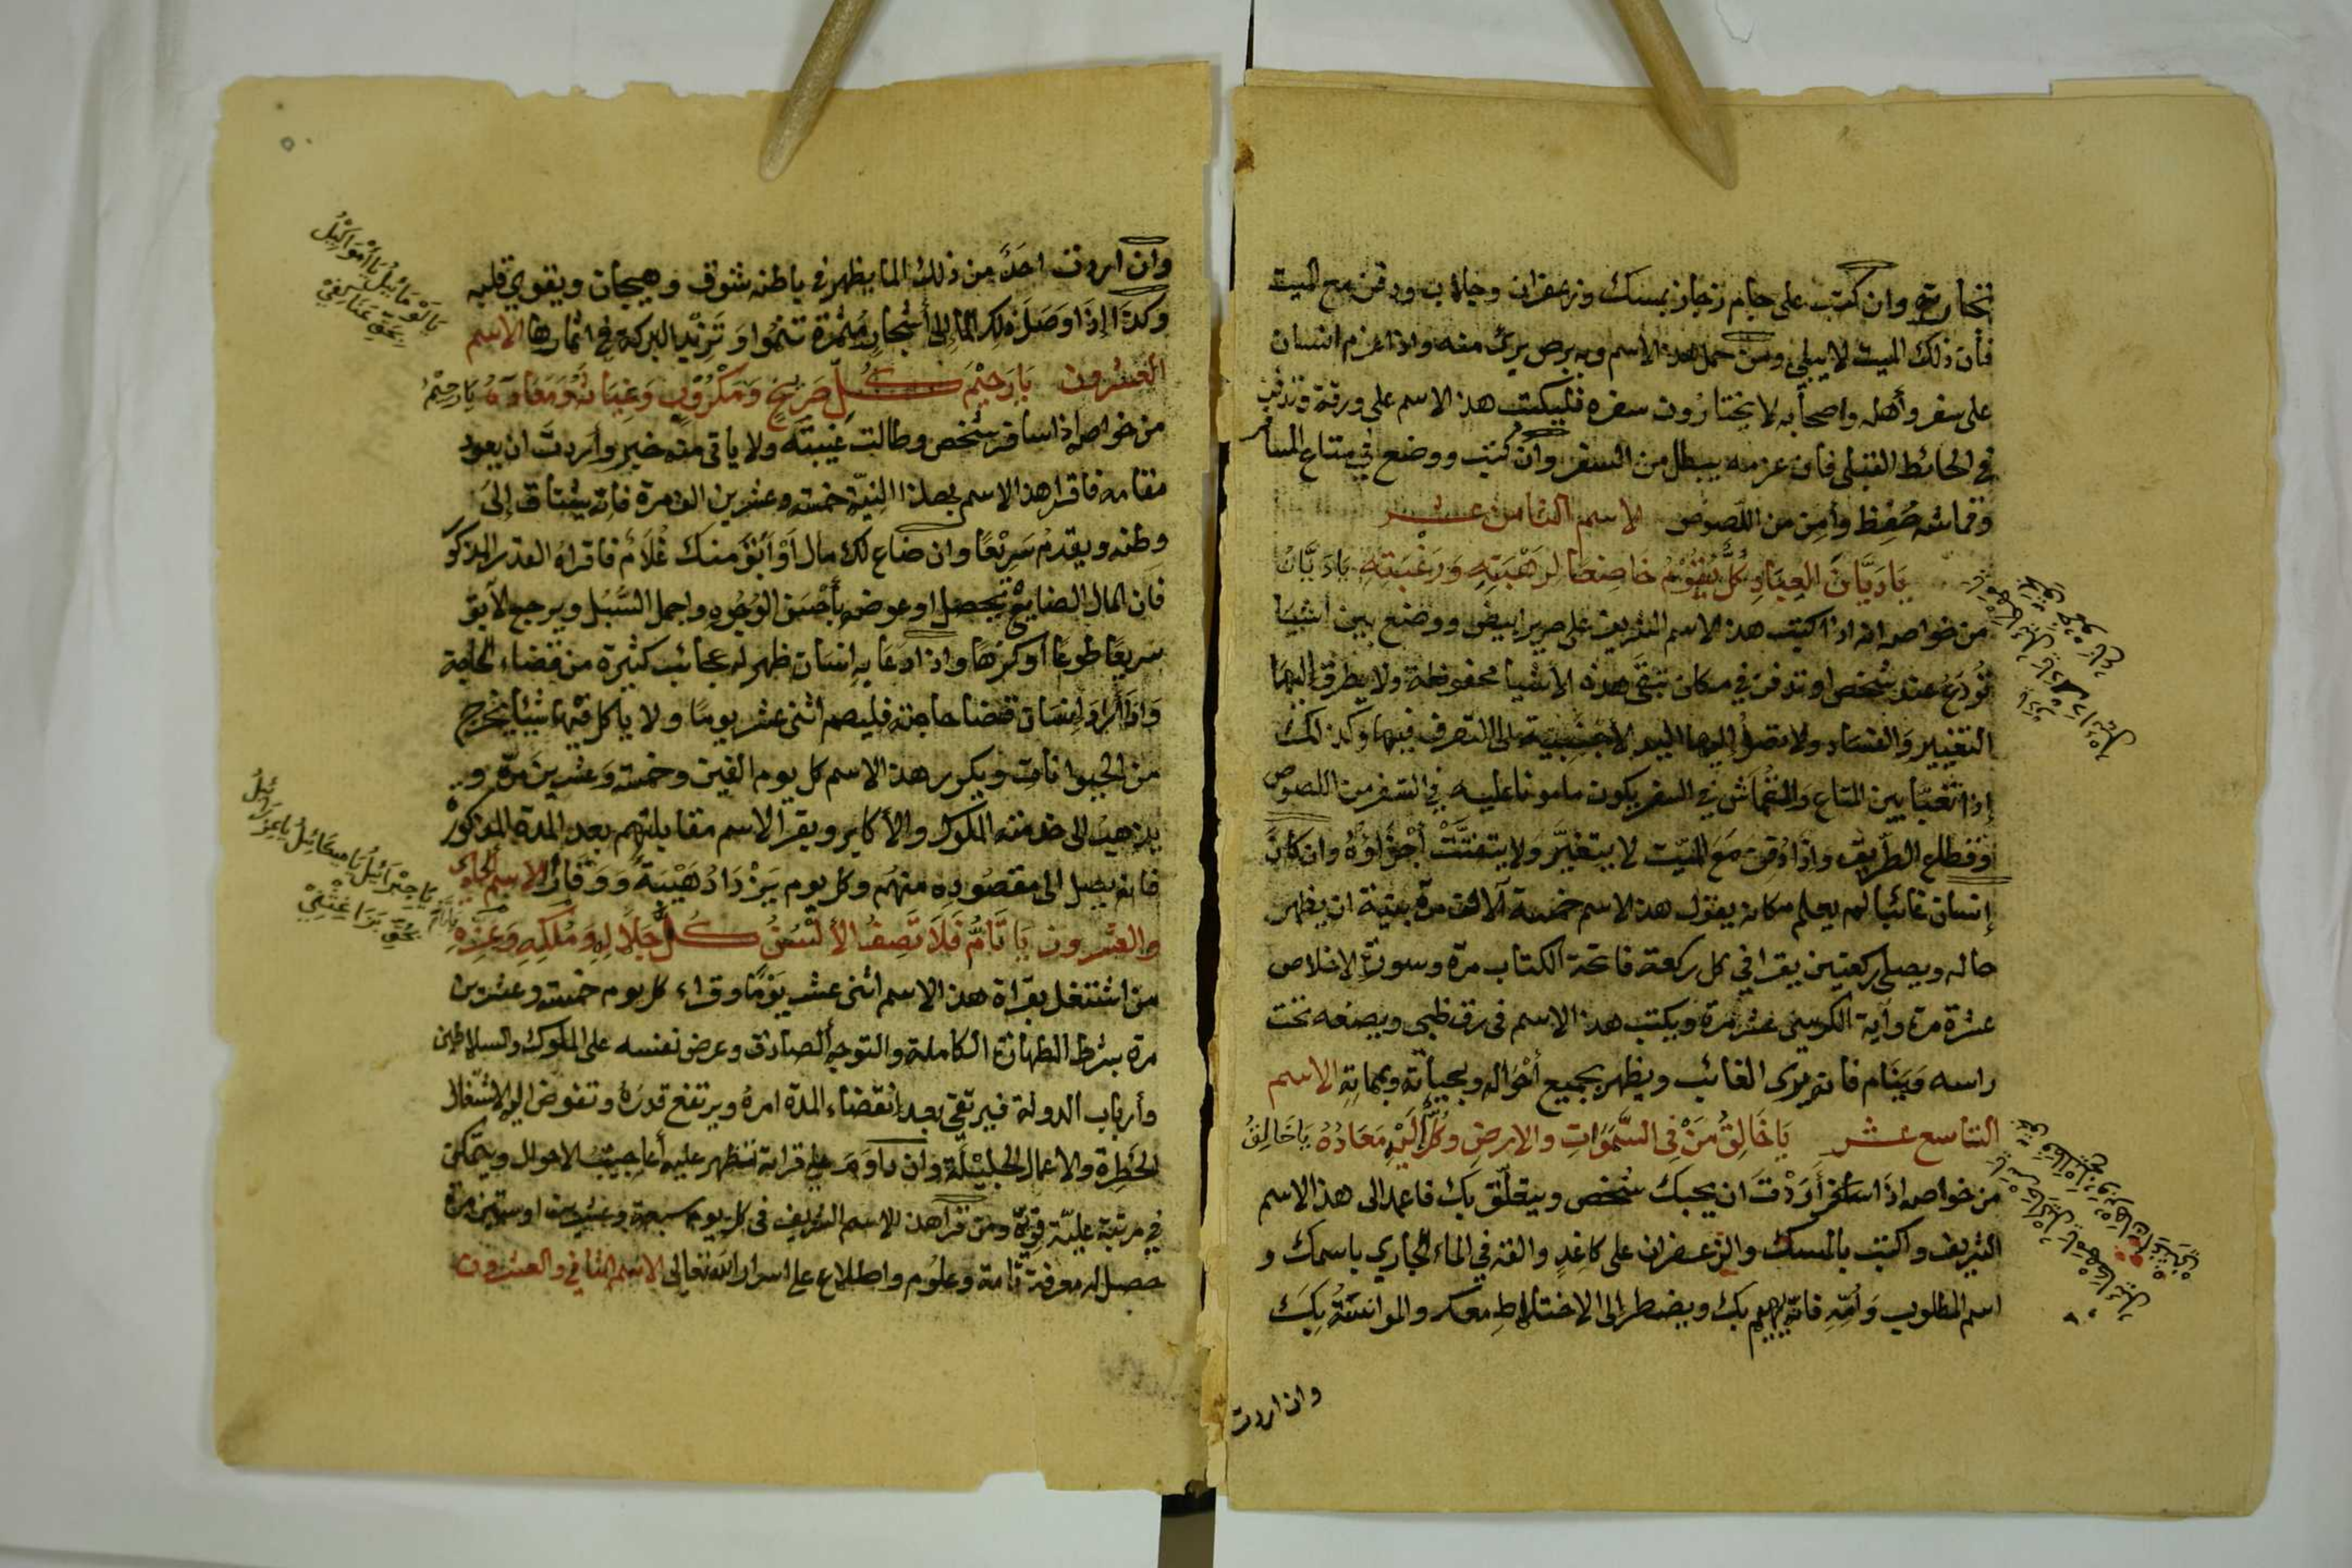 تختاره وان كتب على جام زجاز بمسك وزعفران وجلاب ودفن مع الميت
فأن ذلك الميت لا يبلي ومن حمل هذا الاسم وبه برص يرئ منه واذا عزم انسان
على سفر وأهله واصحابه لا يختارون سفره فليكتب هذ الاسم على ورقة وتدفن
في الحائط القبلى فان عزمه يبطل من السفر وان كتب ووضع في متاع المسافر
وقماشه حُفِظ وأمِن من اللصوص الاسم الثامن عشر
يَا دَيَّانَ العِبَادِ كُلٌّ يَقُوْمُ خَاضِعًا لِرَهْبَتِهِ وَرَغْبَتِهِ يَا دَيَّانُ
من خواصه انه اذا كتب هذ الاسم الشريف على حرير ابيض ووضع بين اشيا
تُودَعُ عند شخص او تدفن في مكان تبقَى هذه الأشيا محفوظة ولا يطرق اليها
التغيير وَالفساد ولا تصل إليها اليد الأجنبية على التصرف فيها وكذلك
إذا تُخبّا بين المتاع وَالقُمَاش في السفر يكون مامونا عليه في السّفر من اللصوص
وقطاع الطَّرِيق وإذا دُفِنَ مَعَ المَيّت لا يتغيَّر ولا يتفتَّتْ أجْزاؤهُ وان كان
إنسان غائبا لم يعلم مكانه يقول هذ الاسم خمسة آلاف مرة بنية ان يظهر
حاله ويصلي ركعتين يقرا في كل ركعة فاتحة الكتاب مرة وسورة الاخلاص
عشرة مرة وآية الكرسي عشر مرة ويكتب هذ الاسم في رق ظبي ويضعه تحت
راسه وَيَنَام فانه يرى الغائب ويظهر بجميع أحْوَاله وبحياته وبمماتهِ الاسم
التاسع عشر يَا خَالِقُ مَنْ فِى السَّمَوَاتِ والارضِ وكُلٌّ إلَيْهِ مَعَادُهُ يَا خَالِقُ
من خواصه اذا أرَدْتَ ان يحبك شخص ويتعلّق بك فاعمد الى هذ الاسم
الشريف واكتب بالمسك والزعفران على كاغدٍ والقه في الماء الجاري باسمك و
اسم المطلوب وَأُمِّهِ فانّه يهيم بك ويضطر الى الاختلاطِ معك والموانسَةُ بِكَ
وان اردت
وان اردت احدً من ذلك الما يظهر في باطنه شوق وهيجان ويقوي قلبه
وكذَا إذَا وصَلَ ذلك الماء إلى أشْجارٍ مُثمرَة تنمُوا وَ تَزِيْد البركة في اثمارها الاسم
العشرون يَا رَحِيْمَ كُلِّ صَرِيْخٍ وَمَكْرُوْبٍ وَغِيَاثَهُ وَمَعَاذَهُ يَا رَحِيْمُ
من خواصه اذا سافر شخص وطالت غيبته ولا ياتى منه خبر وأردتَ ان يعود
مقامه فاقرا هذ الاسم بهذا النيّة خمسة وعشرين الف مرة فانه يشتاق إلىَ
وطنه ويقدمُ سَرِيْعًا وان ضاع لك مال أوْ أبَقَ منك غُلامٌ فاقراهُ القدر المذكو
فان المال الضايع يحصل او عوضه بأحْسَن الوُجُوه واجمل السُّبُل ويرجع الآبق
سريعًا طوعًا أوكرهًا واذا دعَا بهِ انسان ظهر له عجائب كثيرة من قضاء الحاجة
وَاذَا أرادَ إنسَان قضا حاجته فليصم اثنى عشر يومًا ولا ياكل فيها شيئا يخرج
من الحيوانات ويكرر هذ الاسم كل يوم الفين وخمسة وَعشرين مرّة و
يذهب الى خدمته الملوك والأكابر ويقرا الاسم مقابلتهم بعد المدة المذكورْ
فانه يصل الى مقصُودِه منهُم وكل يوم يَزْدَادُ هَيْبَةً وَوَقارًا الاسم الحادى
والعشرون يَا تَامُّ فَلَا تَصِفُ الألْسُنُ كُلَّ جَلَالِهِ وَمُلْكِهِ وَعِزِّهِ يَا تَامُّ
من اشتغل بقراة هذ الاسم اثنى عشر يَوْمًا وقراء كل يوم خمسة وعشرين
مرة بشرط الطهارة الكاملة والتوجه الصادق وعرض نفسه على الملوك والسلاطين
وأرباب الدولة فيرتقي بعد انقضاء المدة امرهُ ويرتفع قدرُهُ وتفوض اليه الاشغال
الخَطِرة والاعمال الجليْلَة وان داوَمَ على قراته تظهر عليه أعاجيبُ الاحوال ويتمكن
في مرتبة عليّة قويّة ومن قرا هذ الاسم الشريف فى كل يوم سبعة وعشرين او ستين مرة
حصل له معرفة تامة وعلوم واطلاع على اسرار الله تعالى الاسم الثاني والعشرون